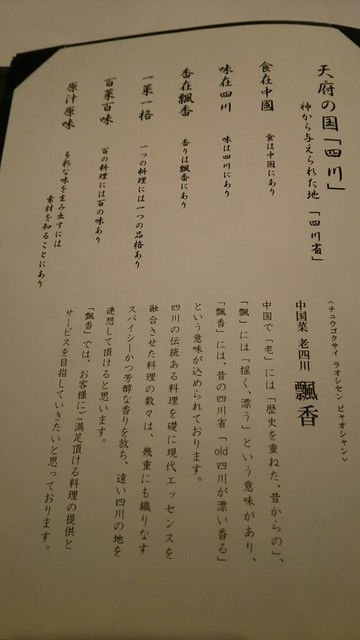 天府の国「四川」
神から与えられた地 「四川省」
食在中國 食は中国にあり
味在四川 味は四川にあり
香在飄香 香りは飄香にあり
一菜一格 一つの料理には一つの品格あり
百菜百味 百の料理には百の味あり
原汁原味 多彩な味を生み出すには
素材を知ることにあり
〈チュウゴクサイ ラオシセン ピャオシャン〉
中国菜 老四川 飄香
中国で「老」には「歴史を重ねた、昔からの」、
「飄」には「揺く、漂う」という意味があり、
「飄香」には、昔の四川省「old四川が漂い香る」
という意味が込められております。
四川の伝統ある料理を礎に現代エッセンスを
融合させた料理の数々は、幾重にも織りなす
スパイシーかつ芳醇な香りを放ち、遠い四川の地を
連想して頂けると思います。
「飄香」では、お客様にご満足頂ける料理の提供と
サービスを目指していきたいと思っております。